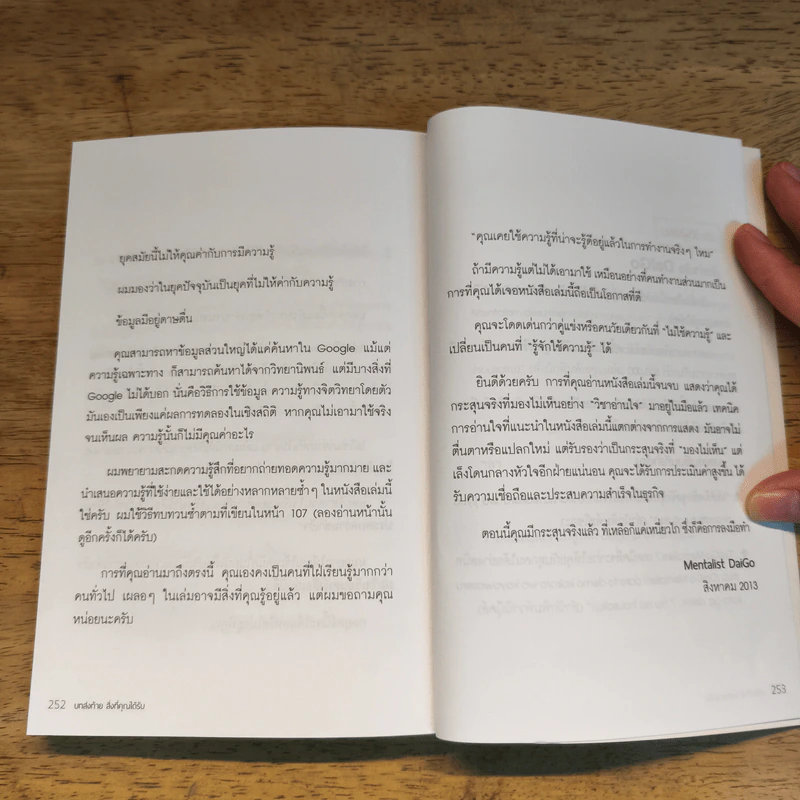 ยุคสมัยนี้ไม่ให้คุณค่ากับการมีความรู้
ผมมองว่าในยุคปัจจุบันเป็นยุคที่ไม่ให้ค่ากับความรู้
ข้อมูลมีอยู่ดาษดื่น
คุณสามารถหาข้อมูลส่วนใหญ่ได้แค่ค้นหาใน Google แม้แต่
ความรู้เฉพาะทาง ก็สามารถค้นหาได้จากวิทยานิพนธ์ แต่มีบางสิ่งที่
Google ไม่ได้บอก นั่นคือวิธีการใช้ข้อมูล ความรู้ทางจิตวิทยาโดยตัว
มันเองเป็นเพียงแค่ผลการทดลองในเชิงสถิติ หากคุณไม่เอามาใช้จริง
จนเห็นผล ความรู้นั้นก็ไม่มีคุณค่าอะไร
ผมพยายามสะกดความรู้สึกที่อยากถ่ายทอดความรู้มากมาย และ
นำเสนอความรู้ที่ใช้ง่ายและใช้ได้อย่างหลากหลายซ้ำๆ ในหนังสือเล่มนี้
ใช่ครับ ผมใช้วิธีทบทวนซ้ำตามที่เขียนในหน้า 107 (ลองอ่านหน้านั้น
ดูอีกครั้งก็ได้ครับ)
การที่คุณอ่านมาถึงตรงนี้ คุณเองคงเป็นคนที่ใฝ่เรียนรู้มากกว่า
คนทั่วไป เผลอๆ ในเล่มอาจมีสิ่งที่คุณรู้อยู่แล้ว แต่ผมขอถามคุณ
หน่อยนะครับ
252 บทส่งท้าย สิ่งที่คุณได้รับ
"คุณเคยใช้ความรู้ที่น่าจะรู้ดีอยู่แล้วในการทำงานจริงๆ ไหม"
ถ้ามีความรู้แต่ไม่ได้เอามาใช้ เหมือนอย่างที่คนทำงานส่วนมากเป็น
การที่คุณได้เจอหนังสือเล่มนี้ถือเป็นโอกาสที่ดี
คุณจะโดดเด่นกว่าคู่แข่งหรือคนวัยเดียวกันที่ "ไม่ใช้ความรู้" และ
เปลี่ยนเป็นคนที่ "รู้จักใช้ความรู้" ได้
ยินดีด้วยครับ การที่คุณอ่านหนังสือเล่มนี้จนจบ แสดงว่าคุณได้
กระสุนจริงที่มองไม่เห็นอย่าง "วิชาอ่านใจ" มาอยู่ในมือแล้ว เทคนิค
การอ่านใจที่แนะนำในหนังสือเล่มนี้แตกต่างจากการแสดง มันอาจไม่
ตื่นตาหรือแปลกใหม่ แต่รับรองว่าเป็นกระสุนจริงที่ "มองไม่เห็น" แต่
เล็งโดนกลางหัวใจอีกฝ่ายแน่นอน คุณจะได้รับการประเมินค่าสูงขึ้น ได้
รับความเชื่อถือและประสบความสำเร็จในธุรกิจ
ตอนนี้คุณมีกระสุนจริงแล้ว ที่เหลือก็แค่เหนี่ยวไก ซึ่งก็คือการลงมือทำ
Mentalist DaiGo
สิงหาคม 2013
253